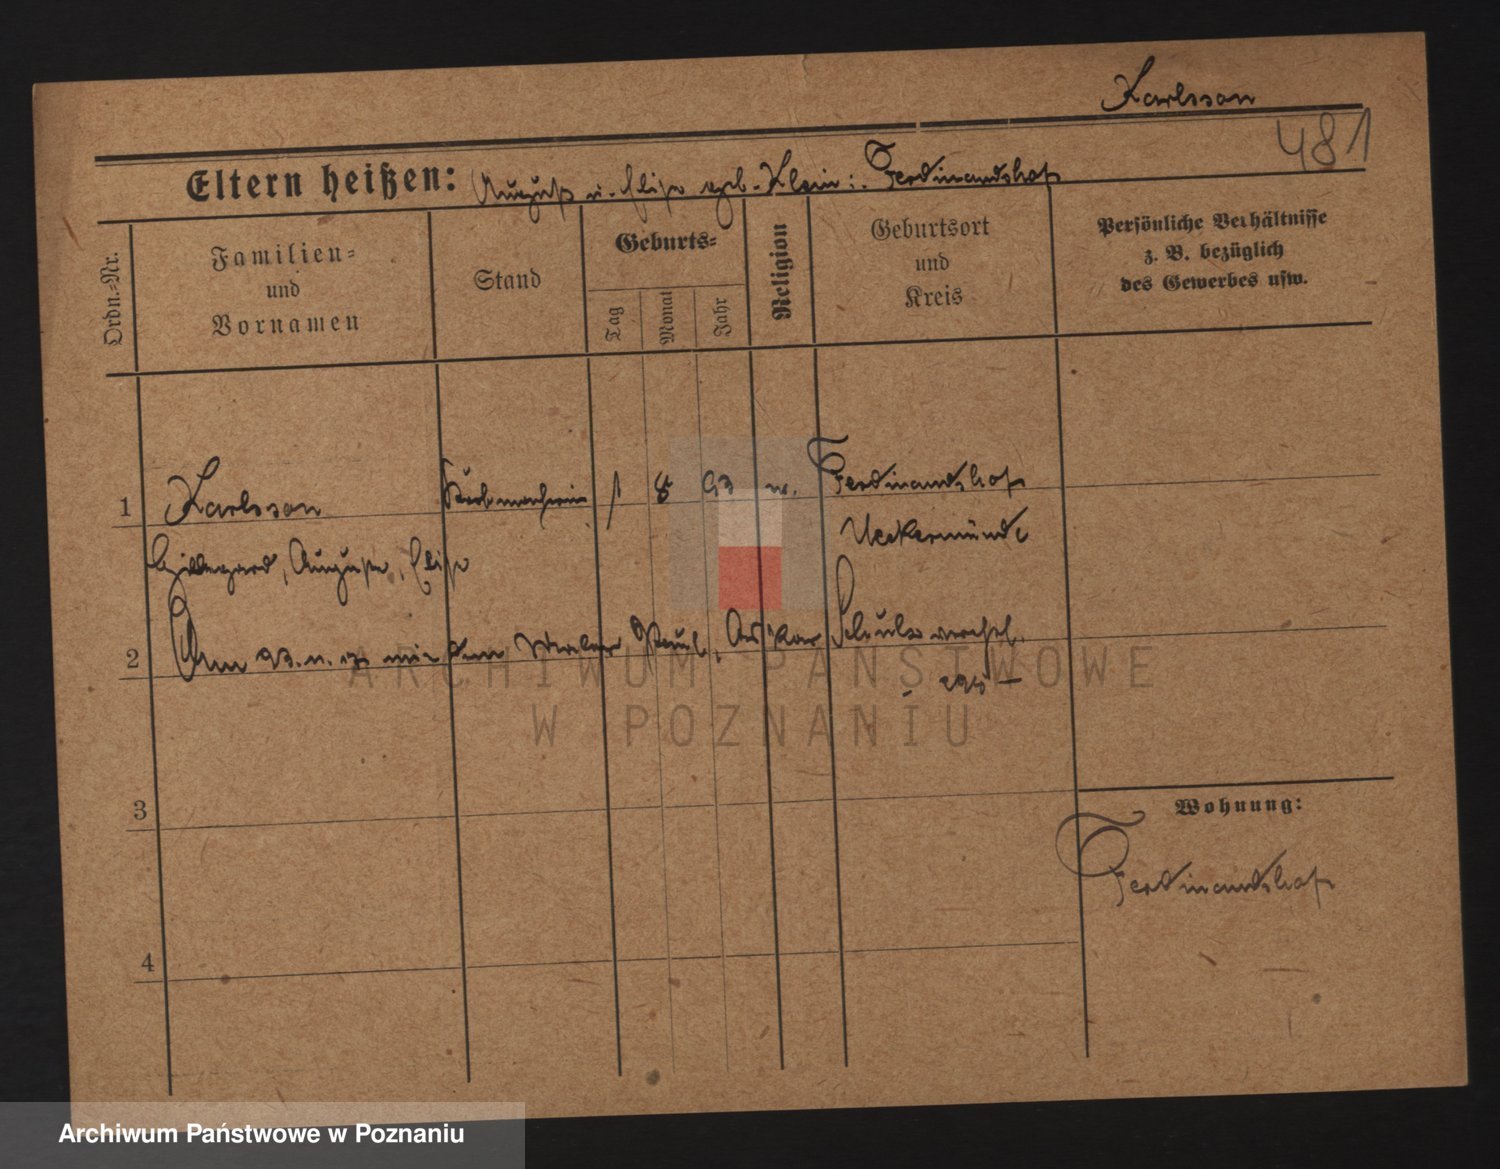 Karlsson
481
Eltern heißen: August u. Elise geb. Klein: Ferdinandshof
Ordn.-Nr.
Familien- und Vornamen
Stand
Geburts-
Tag
Monat
Jahr
Religion
Geburtsort und Kreis
Persönliche Verhältnisse
z. B. bezüglich
des Gewerbes usw.
1 Karlsson 1 8 93 Ferdinandshof
Ueckermünde
Hildegard, Auguste, Elise
2 Am mit dem Maler Paul, Oskar Schulz verehel.
3
Wohnung:
Ferdinandshof
4
ARCHIWUM PAŃSTWOWE
W POZNANIU
Archiwum Państwowe w Poznaniu